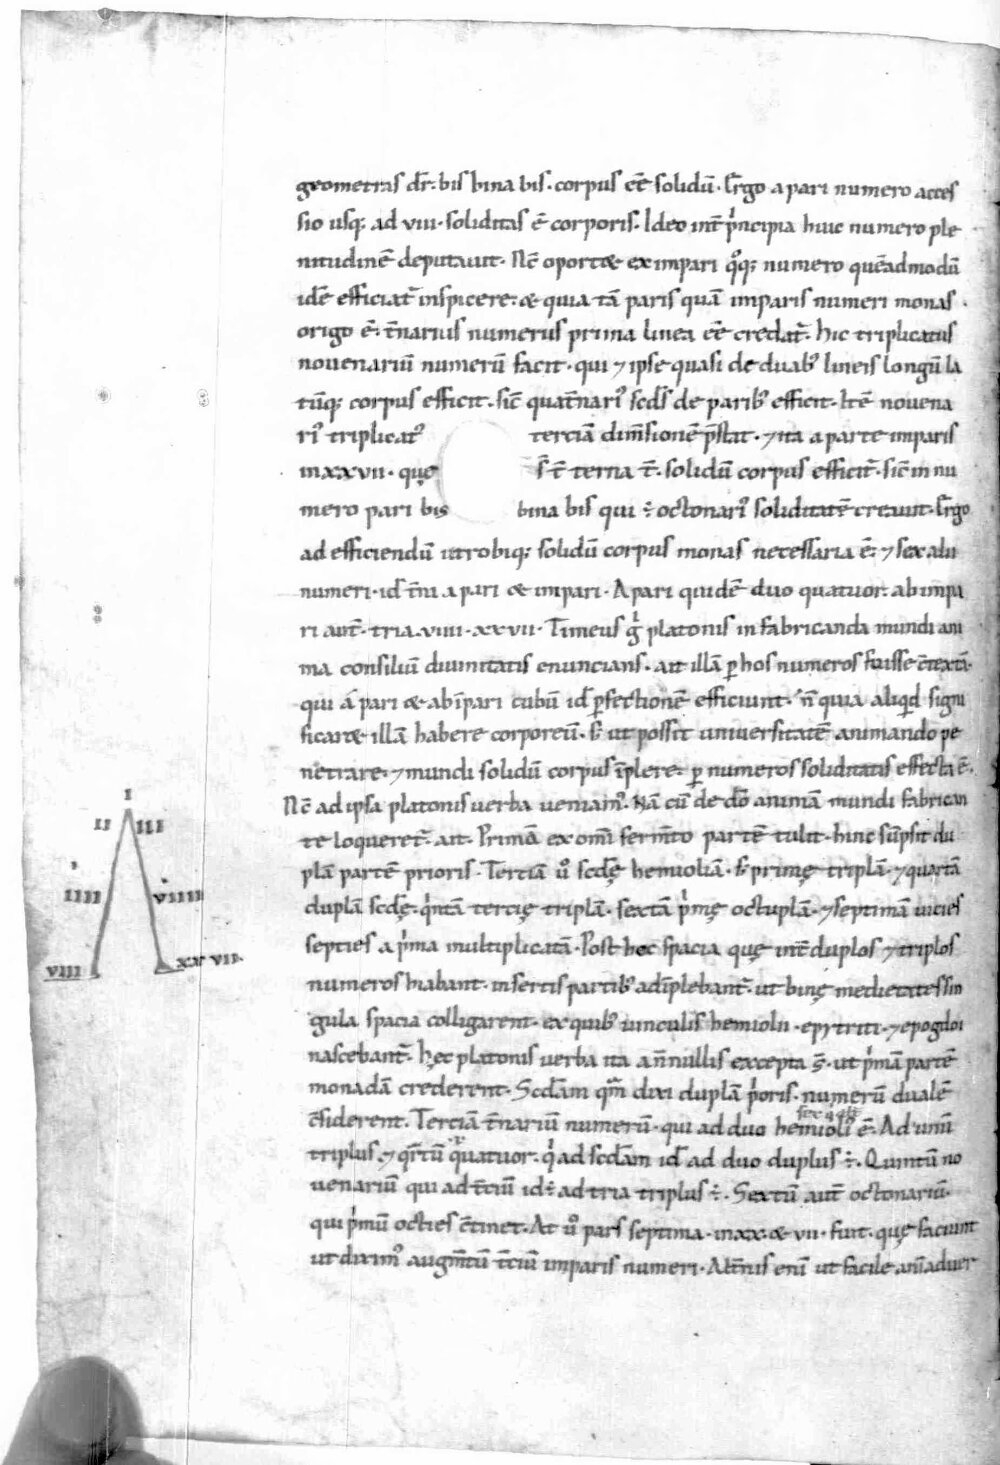 geometras dr̄. bis bina bis. corpus eē solidū. Ergo a pari numero acces
sio usq; ad viii. soliditas ē corporis. Ideo int̄ p̍ncipia huic numero ple
nitudinē deputauit. Nc̄ oportet ex impari q°q; numero quēadmodū
idē efficiat᷑ inspicere. & quia tā paris quā imparis numeri monas
origo ē. t̄narius numerus prima linea eē credat᷑. hic triplicatus
nouenariū numerū facit. qui ⁊ ipse quasi de duab᾽ lineis longū la
tūq; corpus efficit. sic̄ quat̄nari᾽ scd̄s de parib᾽ efficit. Itē nouena
ri᾽ triplicat᾽ terciā dim̄sionē p̄stat. ⁊ ita a parte imparis
in xxvii. quę s̄t̄ terna t̄. solidū corpus efficit᷑. sic̄ in nu
mero pari bis bina bis qui ē octonari᾽ soliditatē creauit. Ergo
ad efficiendū utrobiq; solidū corpus monas necessaria ē. ⁊ sex alii
numeri. id t̄ni a pari & impari. A pari quidē duo quatuor. ab impa
ri aut̄. tria. viiii. xxvii. Timeus g̍ platonis in fabricanda mundi ani
ma consiliū diuinitatis enuncians. ait illā ꝑ hos numeros fuisse c̄textā.
qui á pari & ab īpari cubū id ꝑfectionē efficiunt. n̄ quia aliq̍d signi
ficaret illā habere corporeū. s; ut possit uniuersitatē animando pe
netrare. ⁊ mundi solidū corpus īplere. ꝑ numeros soliditatis effecta ē.
Nc̄ ad ipsa platonis uerba ueniam᾽. Nā cū de dō animā mundi fabrican
te loqueret᷑. ait. Primā ex om̄i ferm̄to partē tulit. hinc sūpsit du
plā partē prioris. Terciā u° scdę hemioliā. s; primę triplā. ⁊ quartā
duplā scdę. q̍ntā tercię triplā. sextā p̍mę octuplā. ⁊ septimā uicies
septies a p̍ma multiplicatā. Post hec spacia quę int̄ duplos ⁊ triplos
numeros hiabant. insertis partib᾽ adīplebant᷑. ut binę medietates sin
gula spacia colligarent. ex quib᾽ uinculis hemiolii. epytriti. ⁊ epogdoi
nascebant᷑. Hęc platonis uerba ita a n̄nullis excepta s̄. ut p̍mā partē
monadā crederent. Scd̄am qm̄ dixi duplā p̍oris. numerū dualē
c̄siderent. Terciā t̄nariū numerū. qui ad duo hemioli᾽ ē. Ad unū
triplus. ⁊ qr̄tū quatuor. q̍ ad scd̄am id ad duo duplus ē. Quintū no
uenariū qui ad t̄ciū id ē ad tria triplus ē. Sextū aut̄ octonariū.
qui p̍mū octies c̄tinet. At u° pars septima. in xx. & vii. fuit. quę faciunt
ut dixim᾽ augm̄tū t̄ciū imparis numeri. Alt̄nis enī ut facile aīaduer
I
II III
IIII VIIII
VIII XXVII.